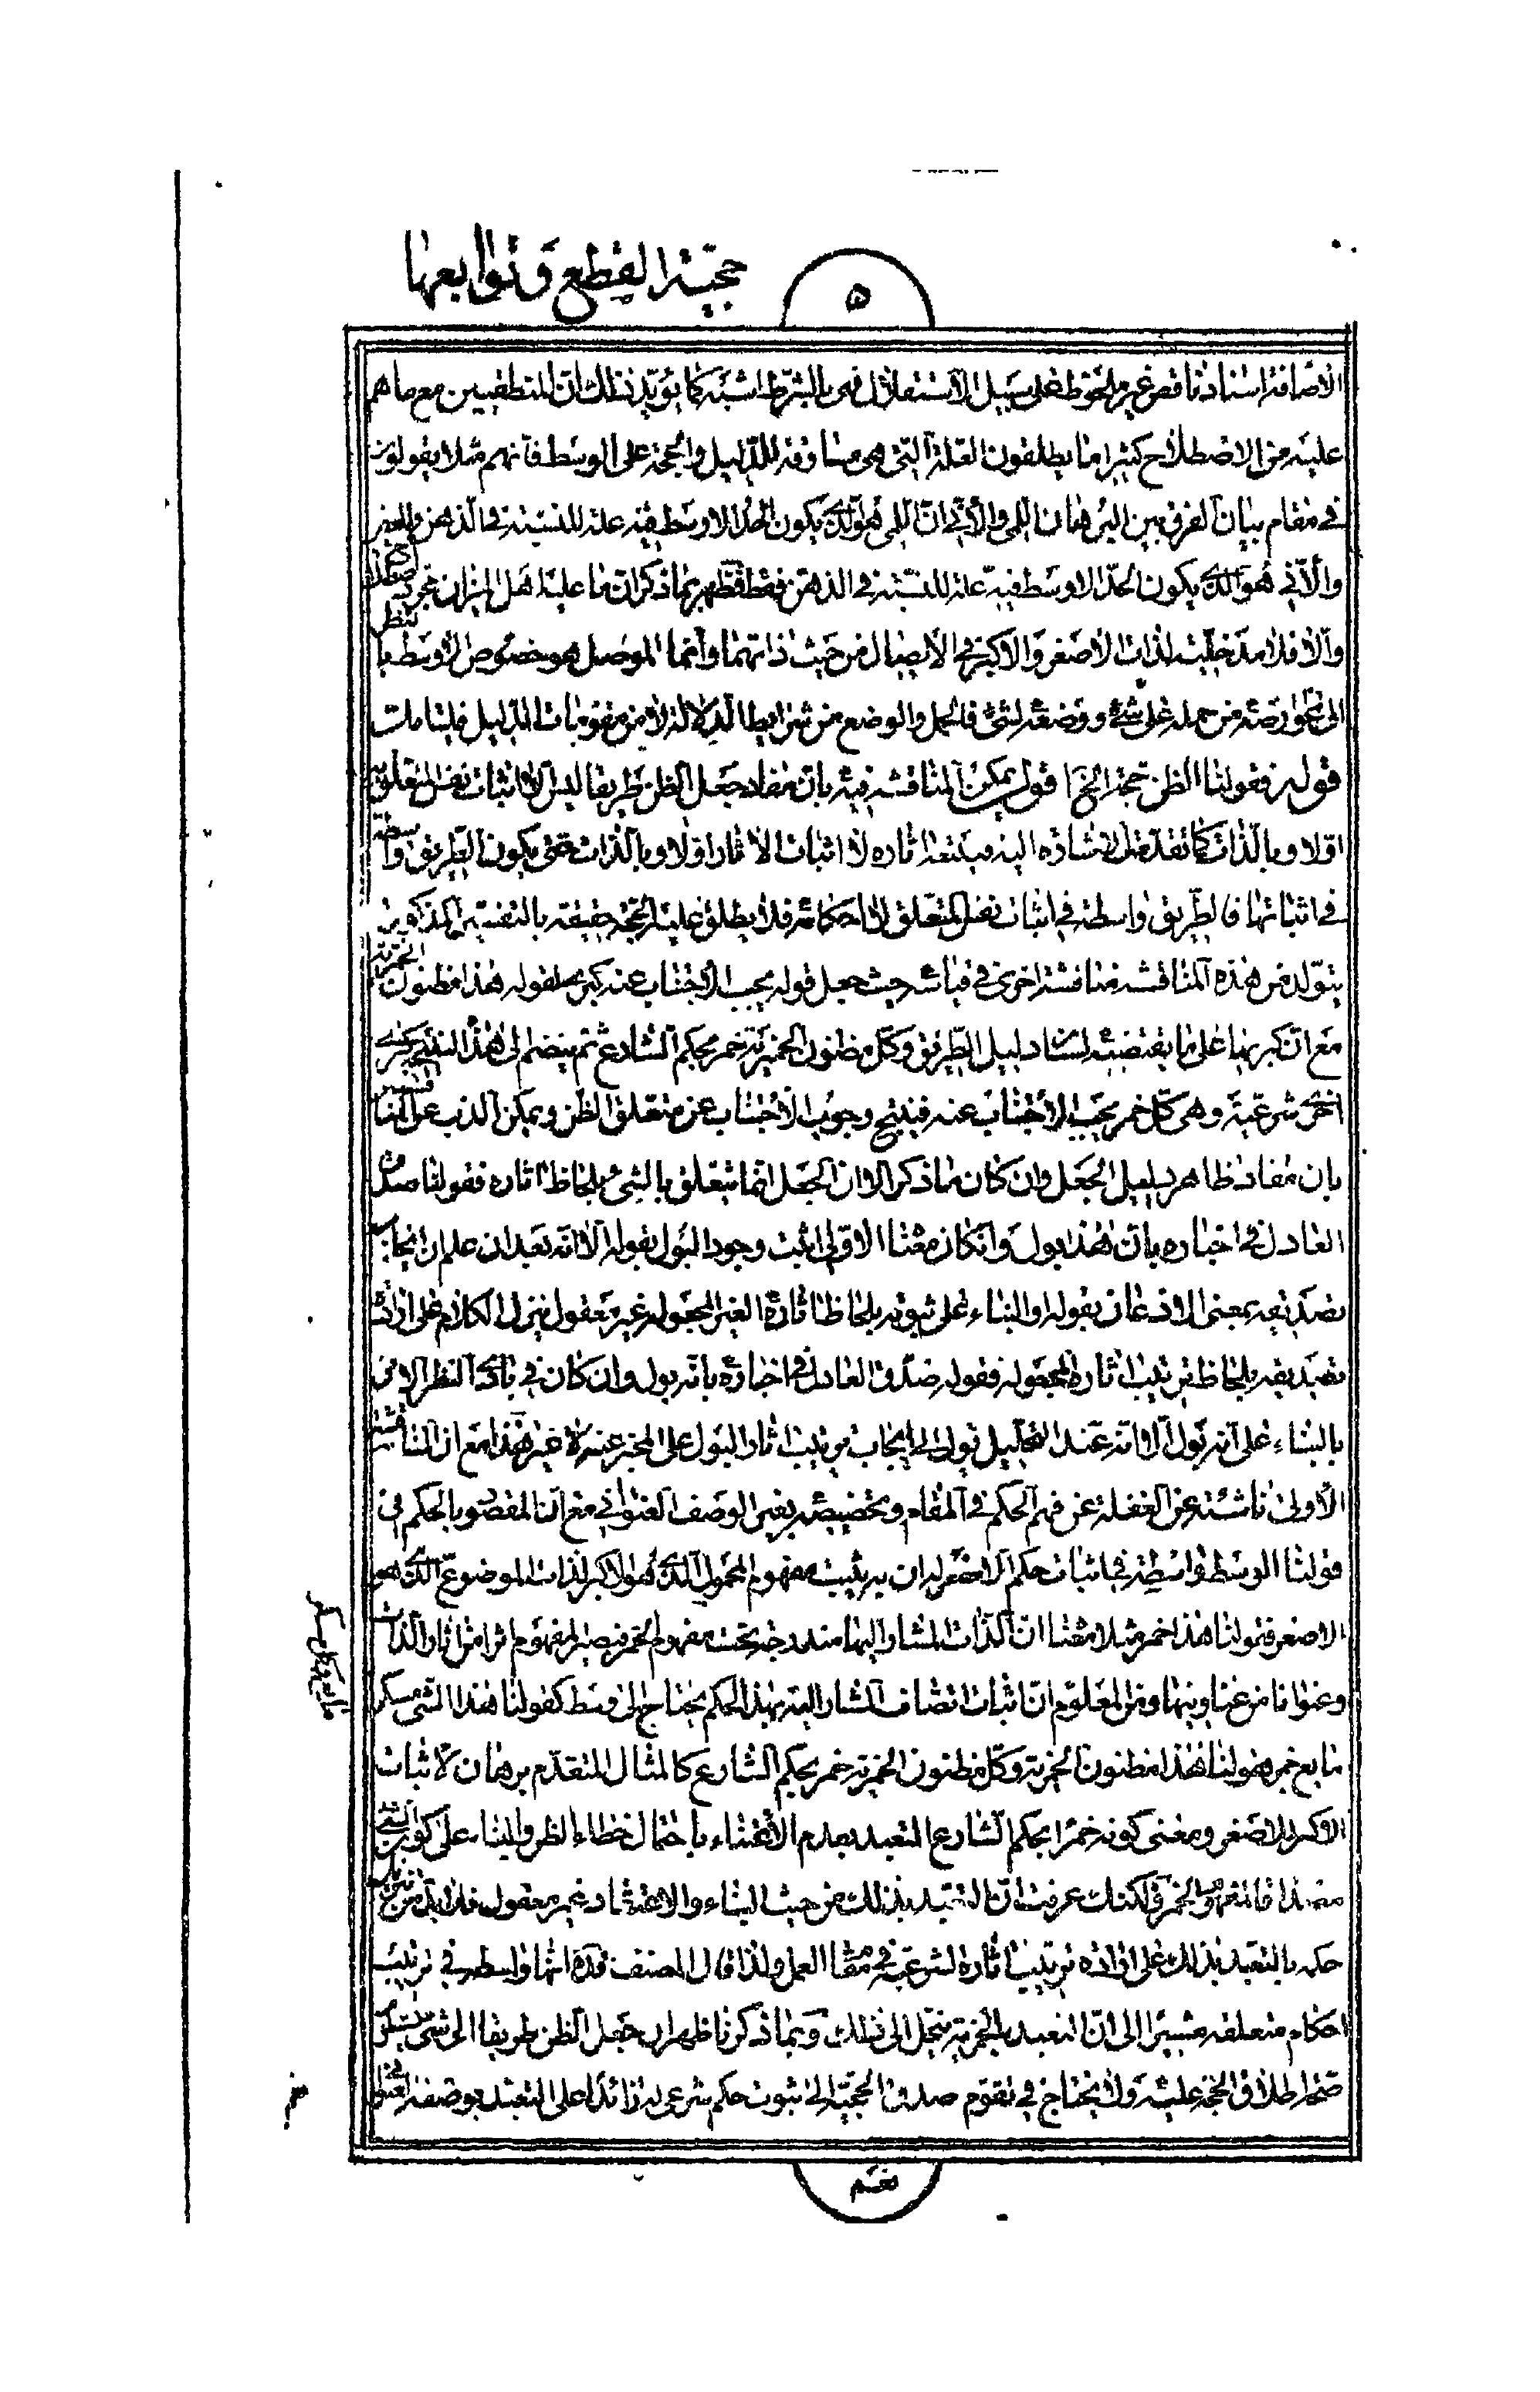 حجيّة القطع وتوابعها
۵
الاضافة اسناد ناقص غير ملحوظ على سبيل الاستقلال فهى بالشرط اشبه كما يؤيد ذلك ان المنطقيين مع ما هم
عليه من الاصطلاح كثيرا ما يطلقون العلة التى هى مساوقة للدليل والحجة على الوسط فانهم مثلا يقولون
فى مقام بيان الفرق بين البرهان اللمى والانّى ان اللمى هو الذى يكون الحد الاوسط فيه علة للنسبة فى الذهن والعين
والانّى هو الذى يكون الحدّ الاوسط فيه علة للنسبة فى الذهن فقط فظهر بما ذكر ان ما عليه اهل الميزان مجرد اصطلاح
والّا فلا مدخلية لذات الاصغر والاكبر فى الايصال من حيث ذاتهما وانما الموصل هو خصوص الاوسط بالنظر
الى عوارضه من حمله على شئ ووضعه لشئ فالحمل والوضع من شرايط الدلالة لا من مقومات الدليل فليتامل
قوله فقولنا الظن حجة الخ اقول يمكن المناقشة فيه بان مفاد جعل الظن طريقا ليس الا اثبات نفس المتعلق به
اولا وبالذات كما تقدمت الاشارة اليه فيتبعه اثاره لا اثبات الاثار اولا وبالذات حتى يكون الطريق واسطة
فى اثباتها فالطريق واسطة فى اثبات نفس المتعلق لا احكامه فلا يطلق عليه الحجة حقيقة بالتفسير المذكور
يتولد من هذه المناقشة مناقشة اخرى فى قياسه حيث جعل قوله يجب الاجتناب عنه كبرى لقوله هذا مظنون الخمرية
مع ان كبريها على ما يقتضيه لسان دليل الطريق وكل مظنون الخمرية خمر بحكم الشارع ثم ينضم الى هذا النتيجة كبرى
اخرى شرعية وهى كل خمر يجب الاجتناب عنه فينتج وجوب الاجتناب عن متعلق الظن ويمكن الذب عن المناقشتين
بان مفاد ظاهر دليل الجعل وان كان ما ذكر الا ان الجعل انما يتعلق بالشئ بلحاظ اثاره فقولنا صدق
العادل فى اخباره بان هذا بول وان كان معناه الاوّلى اثبت وجود البول بقوله الا انه بعد ان علم ان ايجاب
تصديقه بمعنى الاذعان بقوله والبناء على ثبوته بلحاظ اثاره الغير المجعولة غير معقول ينزل الكلام على ارادة
تصديقه بلحاظ ترتيب اثاره المجعولة فقوله صدّق العادل فى اخباره بانه بول وان كان فى بادى النظر الامر
بالبناء على انه بول الا انه عند التحليل يؤل الى ايجاب ترتيب اثار البول على المخبر عنه لا غير هذا مع ان المناقشة
الاولى ناشئة عن الغفلة عن فهم الحكم فى المقام وتخصيصه بغير الوصف العنوانى مع ان المقصود بالحكم فى
قولنا الوسط واسطة فى اثبات حكم الاصغر له ان به يثبت مفهوم المحمول الذى هو الاكبر لذات الموضوع الذى هو
الاصغر فقولنا هذا خمر مثلا معناه ان الذات المشار اليها مندرجة تحت مفهوم الخمر فيصير المفهوم اثرا من اثار الذات
وعنوانا من عناوينها ومن المعلوم ان اثبات اتصاف المشار اليه بهذا الحكم يحتاج الى وسط كقولنا هذا الشئ مسكر
مايع وكل مسكر
مايع خمر فقولنا هذا مظنون الخمرية وكل مظنون الخمرية خمر بحكم الشارع كالمثال المتقدم برهان لاثبات
الاكبر للاصغر ومعنى كونه خمرا بحكم الشارع التعبد بعدم الاعتناء باحتمال خطاء الظن والبناء على كون
هذا فانه هو الخمر ولكنك عرفت ان التعبد بذلك من حيث البناء والاعتقاد غير معقول فلا بد من تنزيل
حكمه بالتعبد بذلك على ارادة ترتيب اثاره الشرعية فى مقام العمل ولذا قال المصنف قده انها واسطة فى ترتيب
احكام متعلقه مشيرا الى ان التعبد بالخمرية ينحل الى ذلك وبما ذكرنا ظهر ان جعل الظن طريقا الى شئ يستلزم
صحة اطلاق الحجة عليه ولا يحتاج فى تقوم صدق الحجية الى ثبوت حكم شرعى له زائدا على التعبد بوصفه العنوانى
نعم